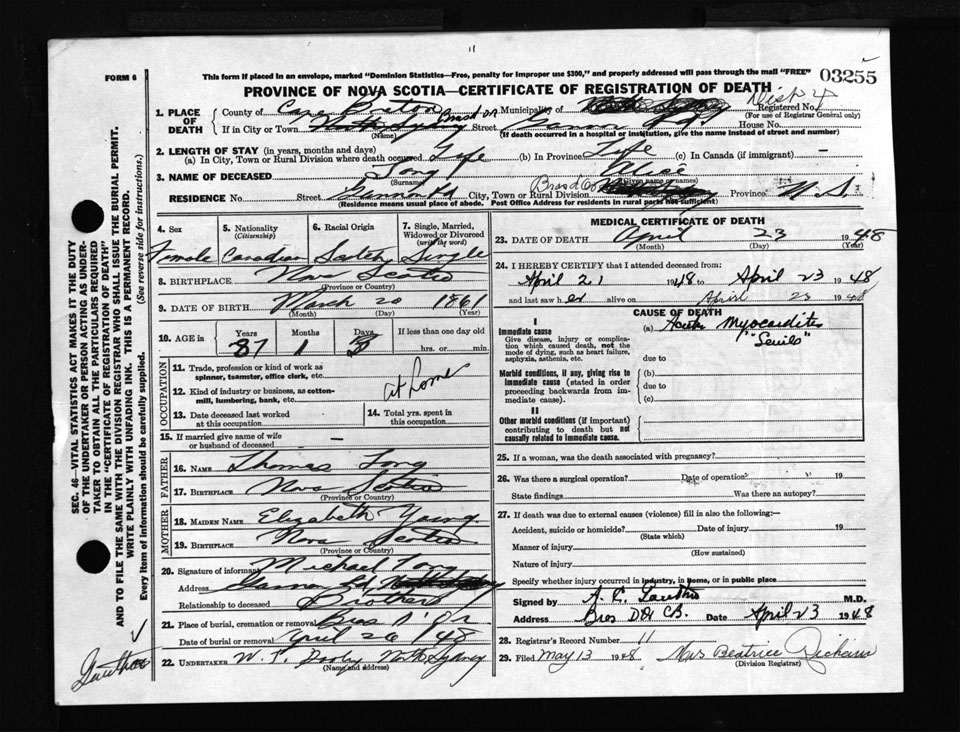 11
FORM 6
This form if placed in an envelope, marked "Dominion Statistics—Free, penalty for improper use $300," and properly addressed will pass through the mail "FREE"
03255
PROVINCE OF NOVA SCOTIA—CERTIFICATE OF REGISTRATION OF DEATH
1. PLACE OF DEATH
County of Cape Breton Municipality of Dist 4 Registered No.
(For use of Registrar General only)
If in City or Town Bras d'or Street House No.
(Name) (If death occurred in a hospital or institution, give the name instead of street and number)
2. LENGTH OF STAY (in years, months and days)
(a) In City, Town or Rural Division where death occurred Life (b) In Province Life (c) In Canada (if immigrant) —
3. NAME OF DECEASED Alice
(Surname) (Given name or names)
RESIDENCE No. Street Gannon Rd City, Town or Rural Division Bras d'Or Province N.S.
(Residence means usual place of abode. Post Office Address for residents in rural parts not sufficient)
4. Sex
Female
5. Nationality
(Citizenship)
Canadian
6. Racial Origin
Scotch
7. Single, Married,
Widowed or Divorced
(write the word)
Single
8. BIRTHPLACE Nova Scotia
(Province or Country)
9. DATE OF BIRTH March 20 1861
(Month) (Day) (Year)
10. AGE in
Years Months Days If less than one day old
87 1 3 hrs. or min.
OCCUPATION
11. Trade, profession or kind of work as
spinner, teamster, office clerk, etc.
12. Kind of industry or business, as cotton-
mill, lumbering, bank, etc.
at home
13. Date deceased last worked
at this occupation
14. Total yrs. spent in
this occupation
15. If married give name of wife
or husband of deceased —
FATHER
16. NAME Thomas
17. BIRTHPLACE Nova Scotia
(Province or Country)
MOTHER
18. MAIDEN NAME Elizabeth Young
19. BIRTHPLACE Nova Scotia
(Province or Country)
20. Signature of informant Michael
Address Gannon Rd
Relationship to deceased Brother
21. Place of burial, cremation or removal Bras d'Or
Date of burial or removal April 26/48
22. UNDERTAKER W. T. North Sydney
(Name and address)
MEDICAL CERTIFICATE OF DEATH
23. DATE OF DEATH April 23 1948
(Month) (Day) (Year)
24. I HEREBY CERTIFY that I attended deceased from:
April 21 1948 to April 23 1948
and last saw her alive on April 23 1948
CAUSE OF DEATH
I
Immediate cause
Give disease, injury or complica-
tion which caused death, not the
mode of dying, such as heart failure,
asphyxia, asthenia, etc.
(a) Acute Myocarditis
"Senile"
due to
Morbid conditions, if any, giving rise to
immediate cause (stated in order
proceeding backwards from im-
mediate cause).
(b)
due to
(c)
II
Other morbid conditions (if important)
contributing to death but not
causally related to immediate cause.
25. If a woman, was the death associated with pregnancy?
26. Was there a surgical operation? Date of operation 19
State findings Was there an autopsy?
27. If death was due to external causes (violence) fill in also the following:—
Accident, suicide or homicide? Date of injury 19
(State which)
Manner of injury
(How sustained)
Nature of injury
Specify whether injury occurred in industry, in home, or in public place
Signed by M.D.
Address Bras D'Or C.B. Date April 23 1948
28. Registrar's Record Number 11
29. Filed May 13 1948 Mrs Beatrice
(Division Registrar)
SEC. 46—VITAL STATISTICS ACT MAKES IT THE DUTY
OF THE UNDERTAKER OR PERSON ACTING AS UNDER-
TAKER TO OBTAIN ALL THE PARTICULARS REQUIRED
IN THE "CERTIFICATE OF REGISTRATION OF DEATH"
AND TO FILE THE SAME WITH THE DIVISION REGISTRAR WHO SHALL ISSUE THE BURIAL PERMIT.
WRITE PLAINLY WITH UNFADING INK. THIS IS A PERMANENT RECORD.
Every item of information should be carefully supplied. (See reverse side for instructions.)